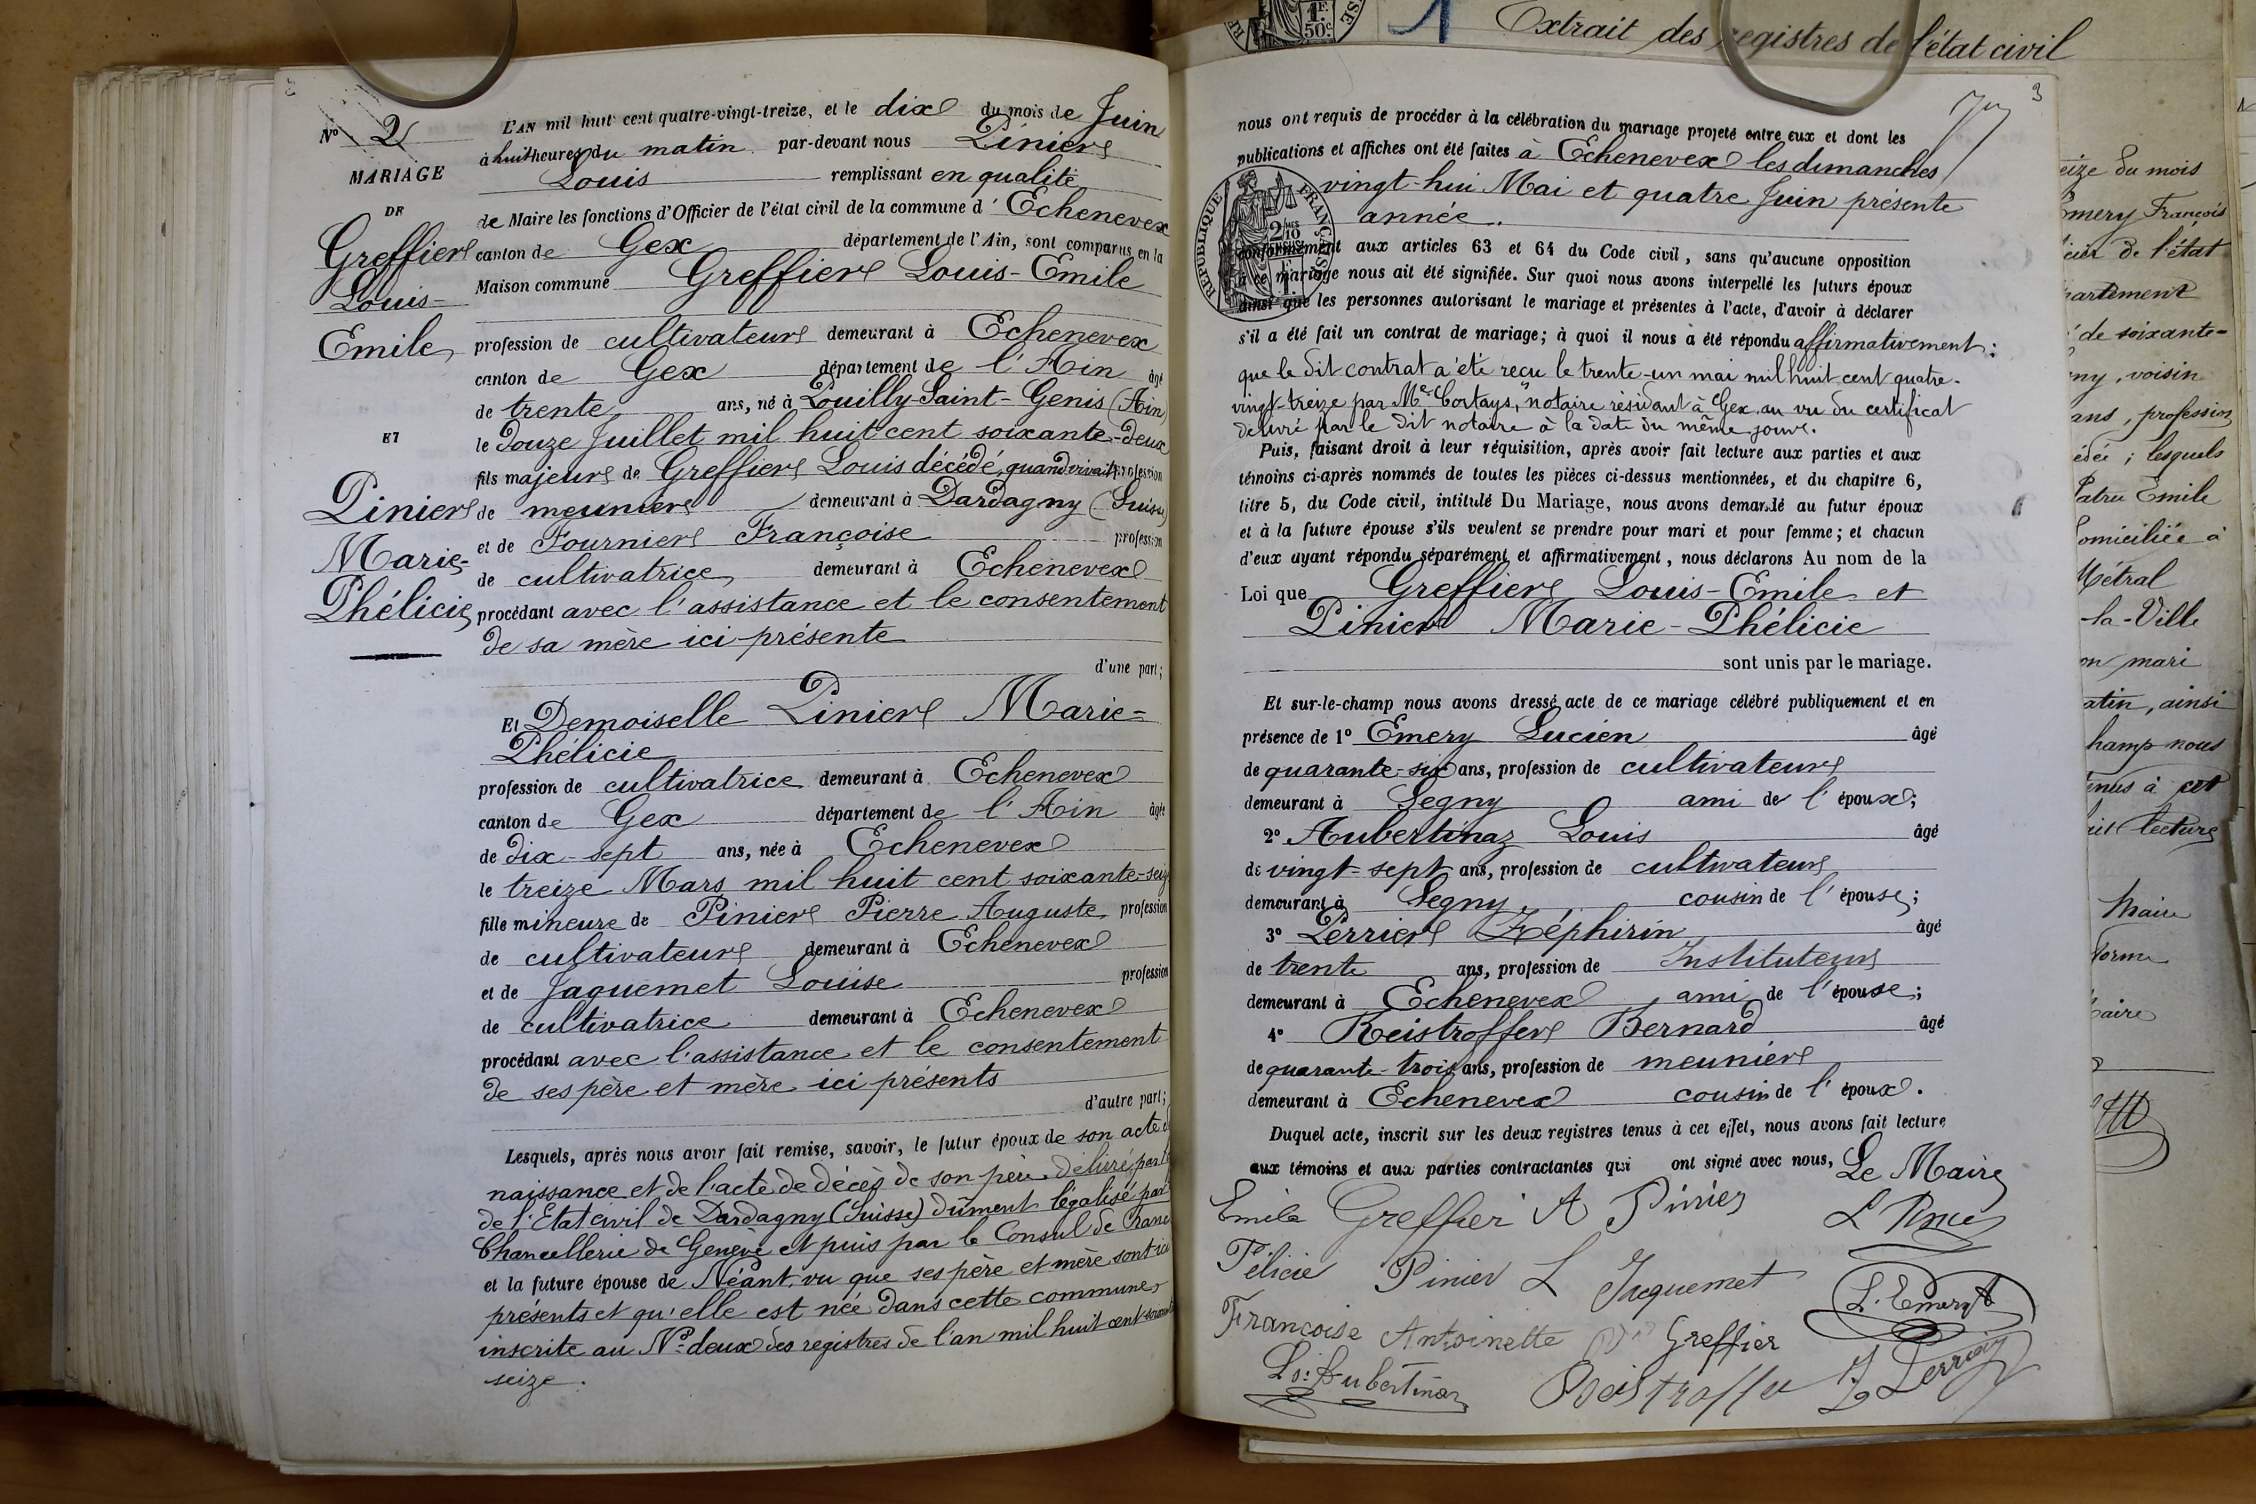 1F.
50c.
1
Extrait des registres de l'état civil
3
No 2
MARIAGE
DE
Greffier
Louis-
Emile
ET
Pinier
Marie-
Phélicie
L'AN mil huit cent quatre-vingt-treize, et le dix du mois de Juin
à huit heures du matin par-devant nous Pinier
Louis remplissant en qualité
de Maire les fonctions d'Officier de l'état civil de la commune d' Echenevex
canton de Gex département de l'Ain, sont comparus en la
Maison commune Greffier Louis-Emile
profession de cultivateur demeurant à Echenevex
canton de Gex département de l'Ain âgé
de trente ans, né à Pouilly-Saint-Genis (Ain)
le douze Juillet mil huit cent soixante-deux
fils majeur de Greffier Louis décédé, quand vivait profession
de meunier demeurant à Dardagny (Suisse)
et de Fournier Françoise profession
de cultivatrice demeurant à Echenevex
procédant avec l'assistance et le consentement
de sa mère ici présente
d'une part;
Et Demoiselle Pinier Marie-
Phélicie
profession de cultivatrice demeurant à Echenevex
canton de Gex département de l'Ain âgée
de dix-sept ans, née à Echenevex
le treize Mars mil huit cent soixante-seize
fille mineure de Pinier Pierre Auguste profession
de cultivateur demeurant à Echenevex
et de Jaquemet Louise profession
de cultivatrice demeurant à Echenevex
procédant avec l'assistance et le consentement
de ses père et mère ici présents
d'autre part;
Lesquels, après nous avoir fait remise, savoir, le futur époux de son acte
naissance et de l'acte de décès de son père délivré par
de l'Etat civil de Dardagny (Suisse) dûment légalisé par
Chancellerie de Genève et puis par le Consul de
et la future épouse de Néant, vu que ses père et mère sont ici
présents et qu'elle est née dans cette commune,
inscrite au No deux des registres de l'an mil huit cent
seize.
nous ont requis de procéder à la célébration du mariage projeté entre eux et dont les
publications et affiches ont été faites à Echenevex les dimanches
vingt-hui Mai et quatre Juin présente
année.
RÉPUBLIQUE FRANÇAISE
conformément aux articles 63 et 64 du Code civil, sans qu'aucune opposition
à ce mariage nous ait été signifiée. Sur quoi nous avons interpellé les futurs époux
ainsi que les personnes autorisant le mariage et présentes à l'acte, d'avoir à déclarer
s'il a été fait un contrat de mariage; à quoi il nous a été répondu affirmativement:
que le dit contrat a été reçu le trente-un mai mil huit cent quatre-
vingt-treize par Me Cortays, notaire résidant à Gex au vu du certificat
délivré par le dit notaire à la date du même jour.
Puis, faisant droit à leur réquisition, après avoir fait lecture aux parties et aux
témoins ci-après nommés de toutes les pièces ci-dessus mentionnées, et du chapitre 6,
titre 5, du Code civil, intitulé Du Mariage, nous avons demandé au futur époux
et à la future épouse s'ils veulent se prendre pour mari et pour femme; et chacun
d'eux ayant répondu séparément et affirmativement, nous déclarons Au nom de la
Loi que Greffier Louis-Emile et
Pinier Marie-Phélicie
sont unis par le mariage.
Et sur-le-champ nous avons dressé acte de ce mariage célébré publiquement et en
présence de 1° Emery Lucien âgé
de quarante-six ans, profession de cultivateur
demeurant à Segny ami de l'époux;
2° Aubertinaz Louis âgé
de vingt-sept ans, profession de cultivateur
demeurant à Segny cousin de l'épouse;
3° Perrier Zéphirin âgé
de trente ans, profession de Instituteur
demeurant à Echenevex ami de l'épouse;
4° Reistroffer Bernard âgé
de quarante-trois ans, profession de meunier
demeurant à Echenevex cousin de l'époux.
Duquel acte, inscrit sur les deux registres tenus à cet effet, nous avons fait lecture
aux témoins et aux parties contractantes qui ont signé avec nous, Le Maire
Emile Greffier A Pinier
Félicie Pinier L Jaquemet
L. Emery
Françoise Antoinette Greffier
Ls: Aubertinaz Reistroffer Z Perrier
eize du mois
Emery François
de l'état
partement
de soixante-
ny, voisin
ans, profession
lesquels
Patru Emile
domiciliée à
Métral
la-Ville
on mari
atin, ainsi
hamp nous
tenus à cet
lecture
Maire
forme
aire